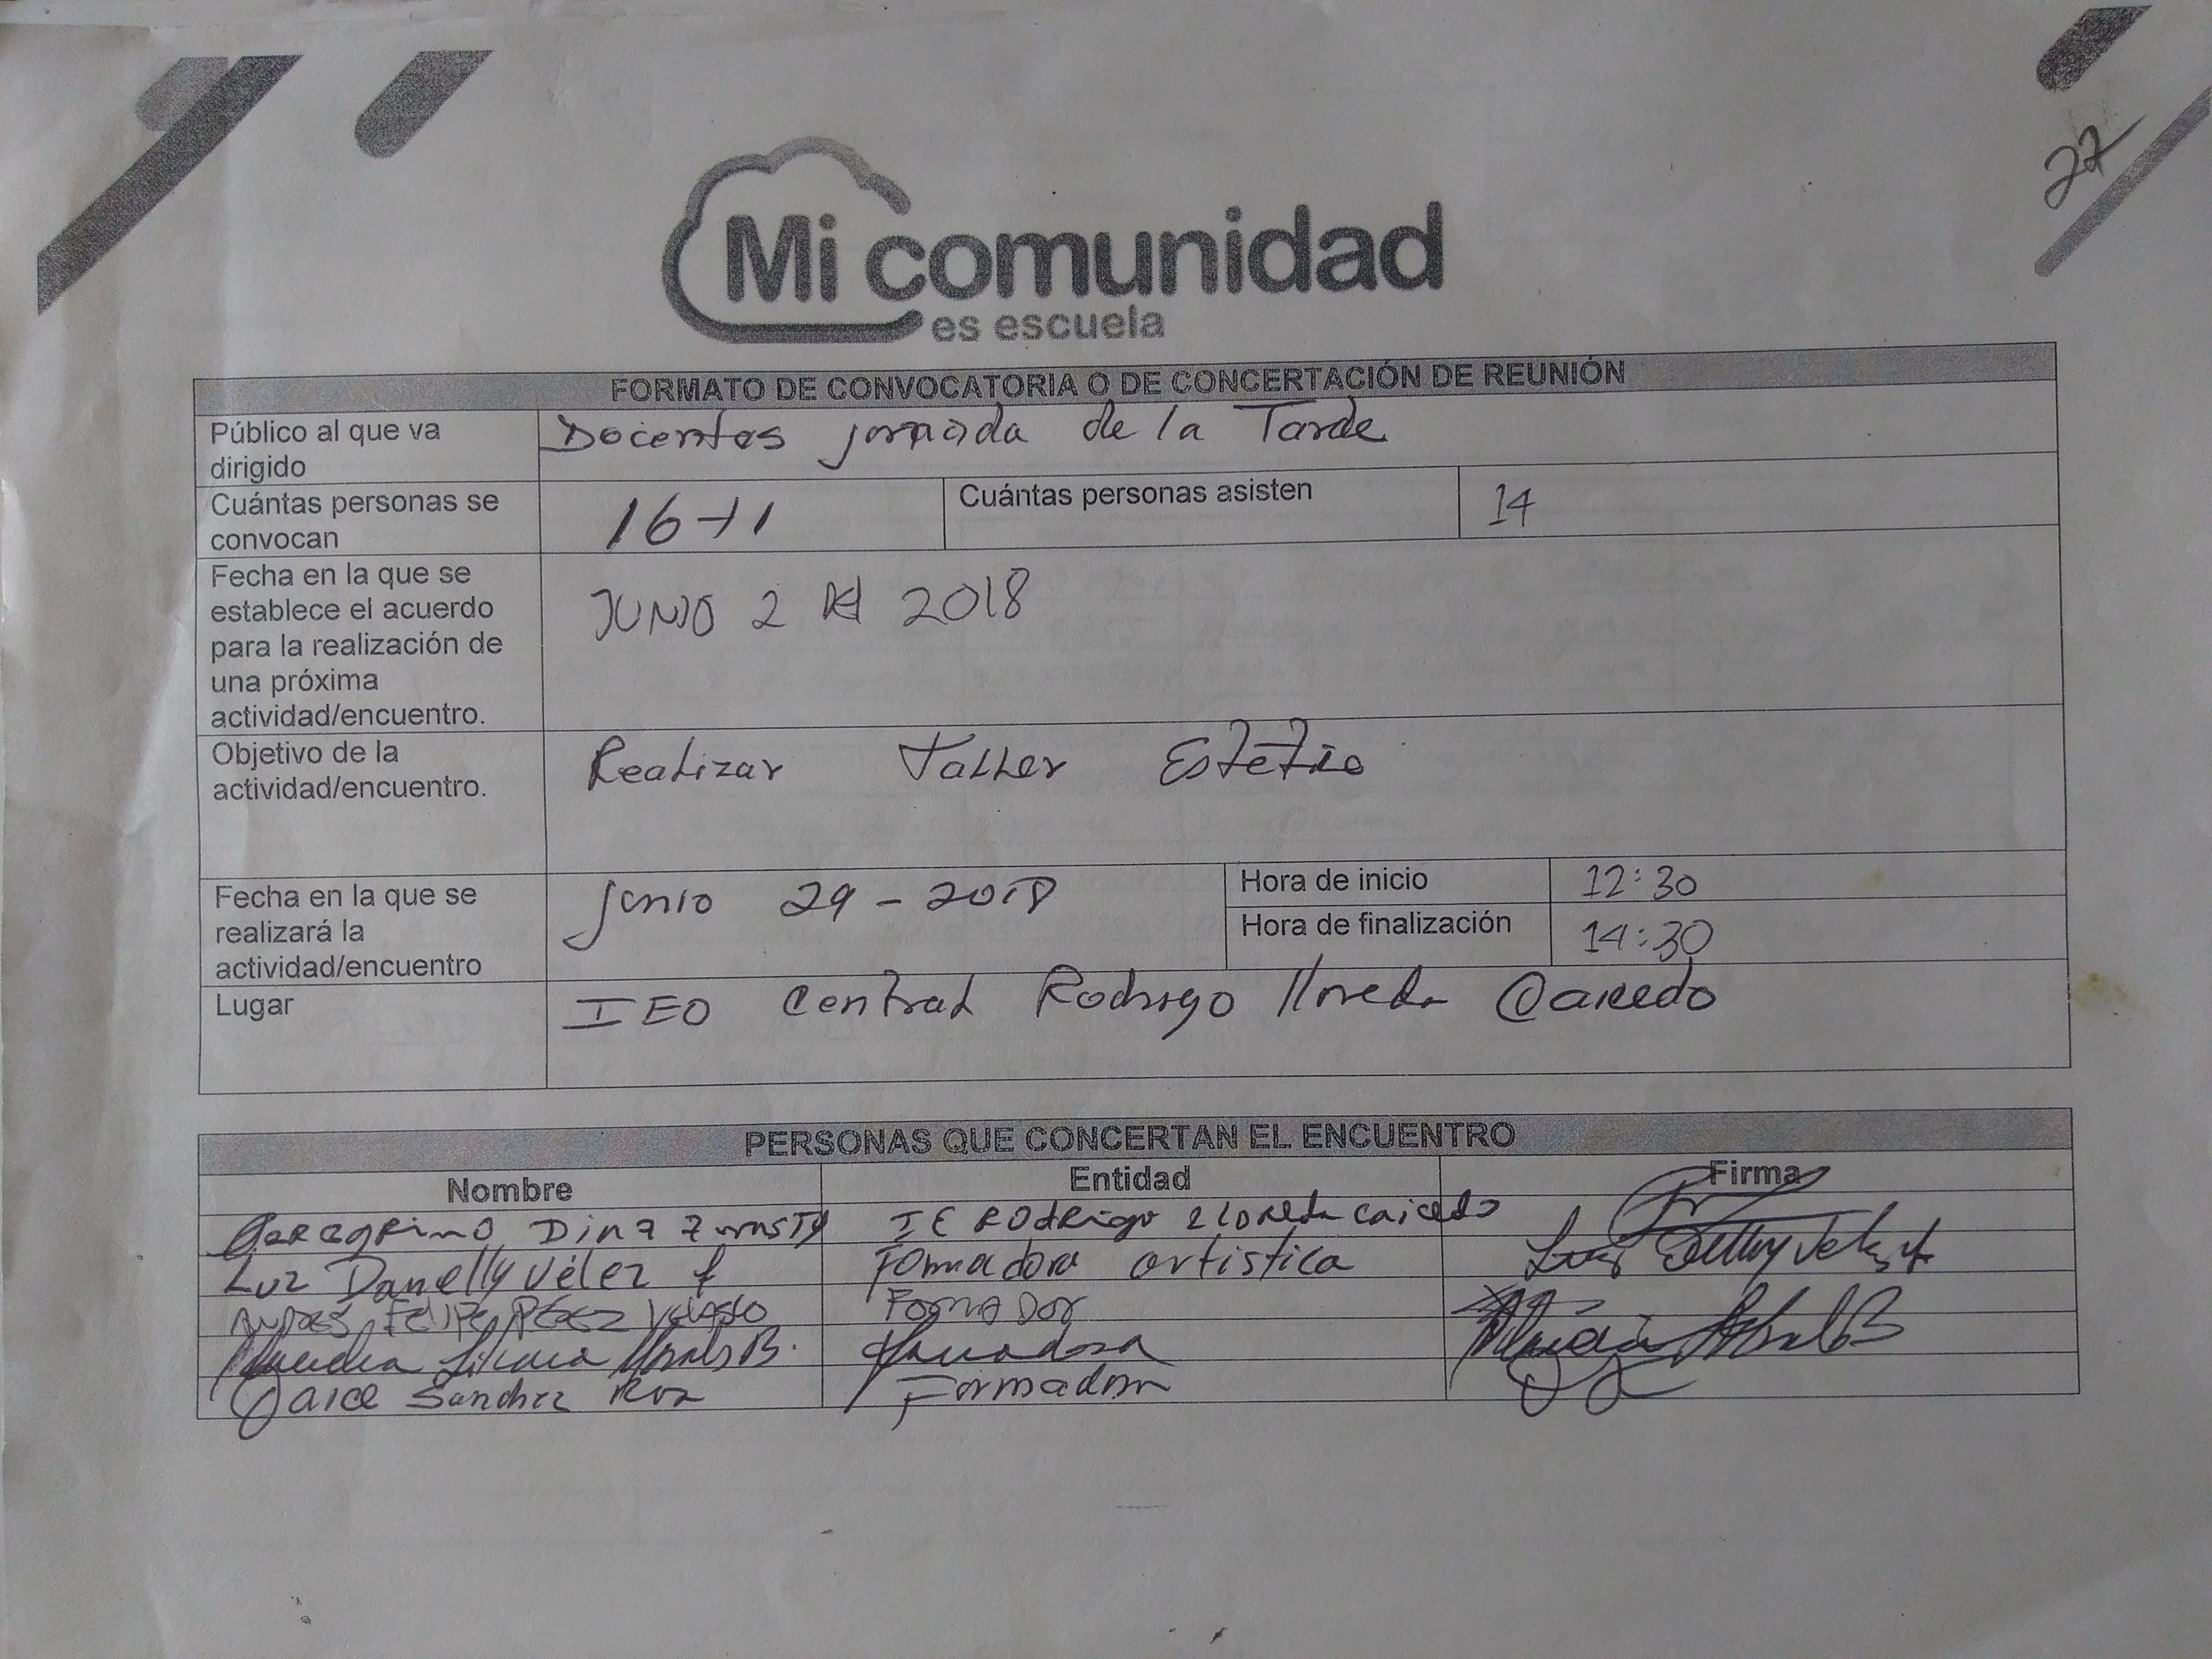 27
Mi comunidad
es escuela
FORMATO DE CONVOCATORIA O DE CONCERTACIÓN DE REUNIÓN
Público al que va
dirigido
Docentes jornada de la Tarde
Cuántas personas se
convocan
16+1
Cuántas personas asisten
14
Fecha en la que se
establece el acuerdo
para la realización de
una próxima
actividad/encuentro.
JUNIO 2 del 2018
Objetivo de la
actividad/encuentro.
Realizar Taller Estético
Fecha en la que se
realizará la
actividad/encuentro
junio 29 - 2018
Hora de inicio
12:30
Hora de finalización
14:30
Lugar
IEO Central Rodrigo lloreda Caicedo
PERSONAS QUE CONCERTAN EL ENCUENTRO
Nombre Entidad Firma
Peregrino IE Rodrigo lloreda caicedo
Luz Danelly Vélez Formadora artistica
Andres Felipe Pérez Velasco Formador
Claudia Formadora
Sanchez Formadora